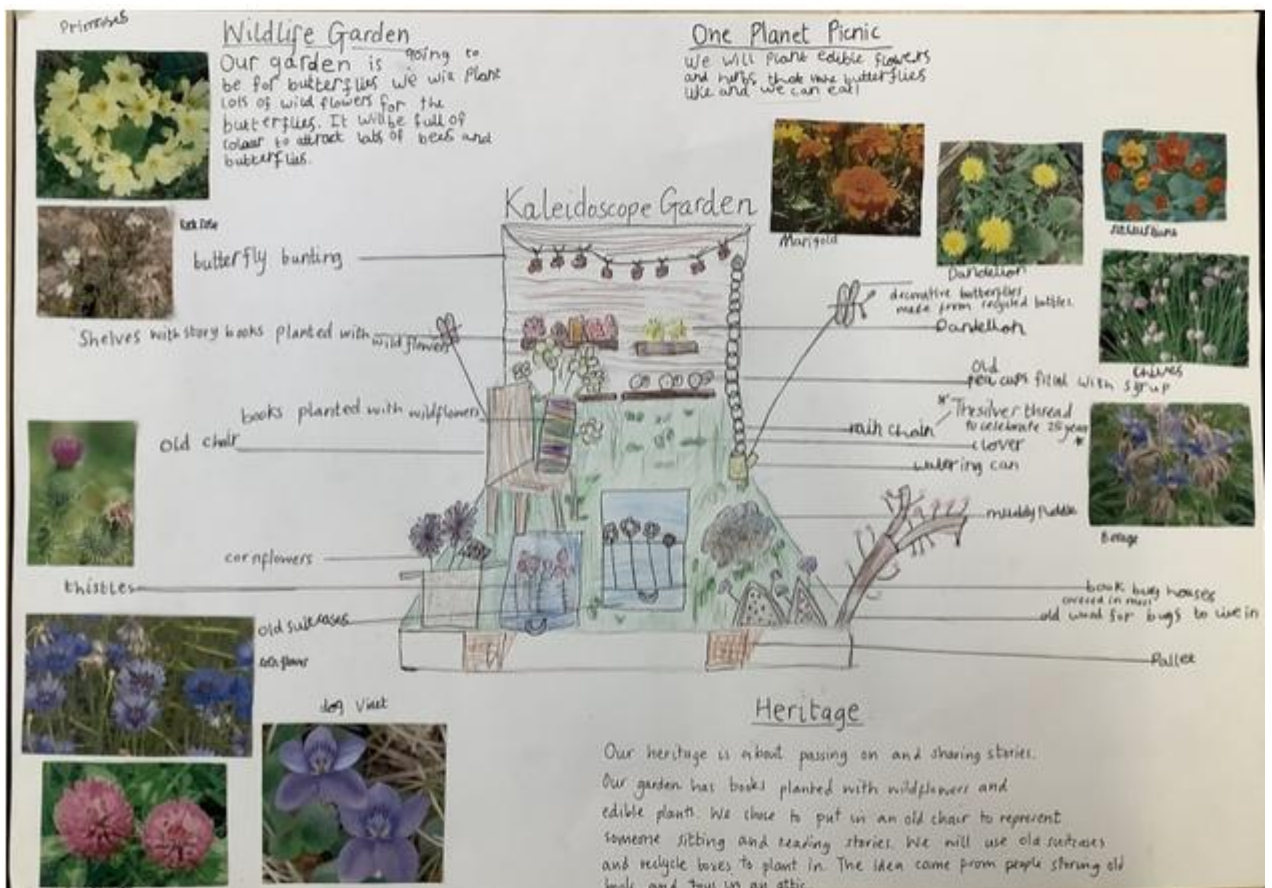 Primroses
Wildlife Garden
Our garden is going to
be for butterflies we will Plant
lots of wild flowers for the
butterflies. It will be full of
colour to attract lots of bees and
butterflies.
One Planet Picnic
We will Plant edible flowers
and herbs that the butterflies
like and we can eat!
Kaleidoscope Garden
Marigold
Dandelion
Chives
Borage
butterfly bunting
Shelves with story books planted with
wild flowers
books planted with wildflowers
old chair
cornflowers
thistles
old suitcases
dog Violet
decorative butterflies
made from recycled bottles.
Dandelion
Old
tea cups filled with syrup
rain chain
* The silver thread
to celebrate 25 year
*
clover
watering can
muddy Puddle
book bug houses
covered in moss
old wood for bugs to live in
Pallet
Heritage
Our heritage is about passing on and sharing stories.
Our garden has books planted with wildflowers and
edible plants. We chose to put in an old chair to represent
someone sitting and reading stories. We will use old suitcases
and recycle boxes to plant in. The idea came from people storing old
books and toys in an attic